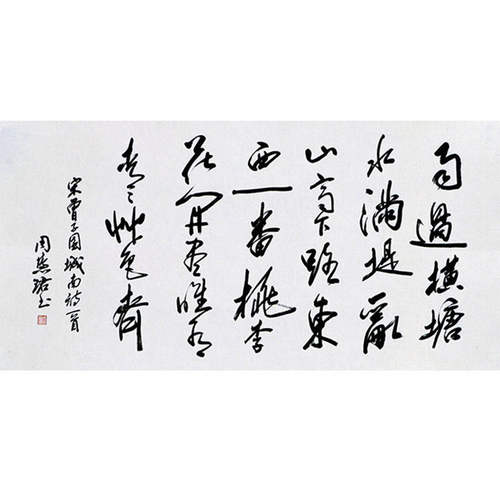 雨過橫塘
水滿堤亂
山高下路東
西一番桃李
花開盡唯有
青々艸色齊
宋曾子固城南詩一首
周慧珺書